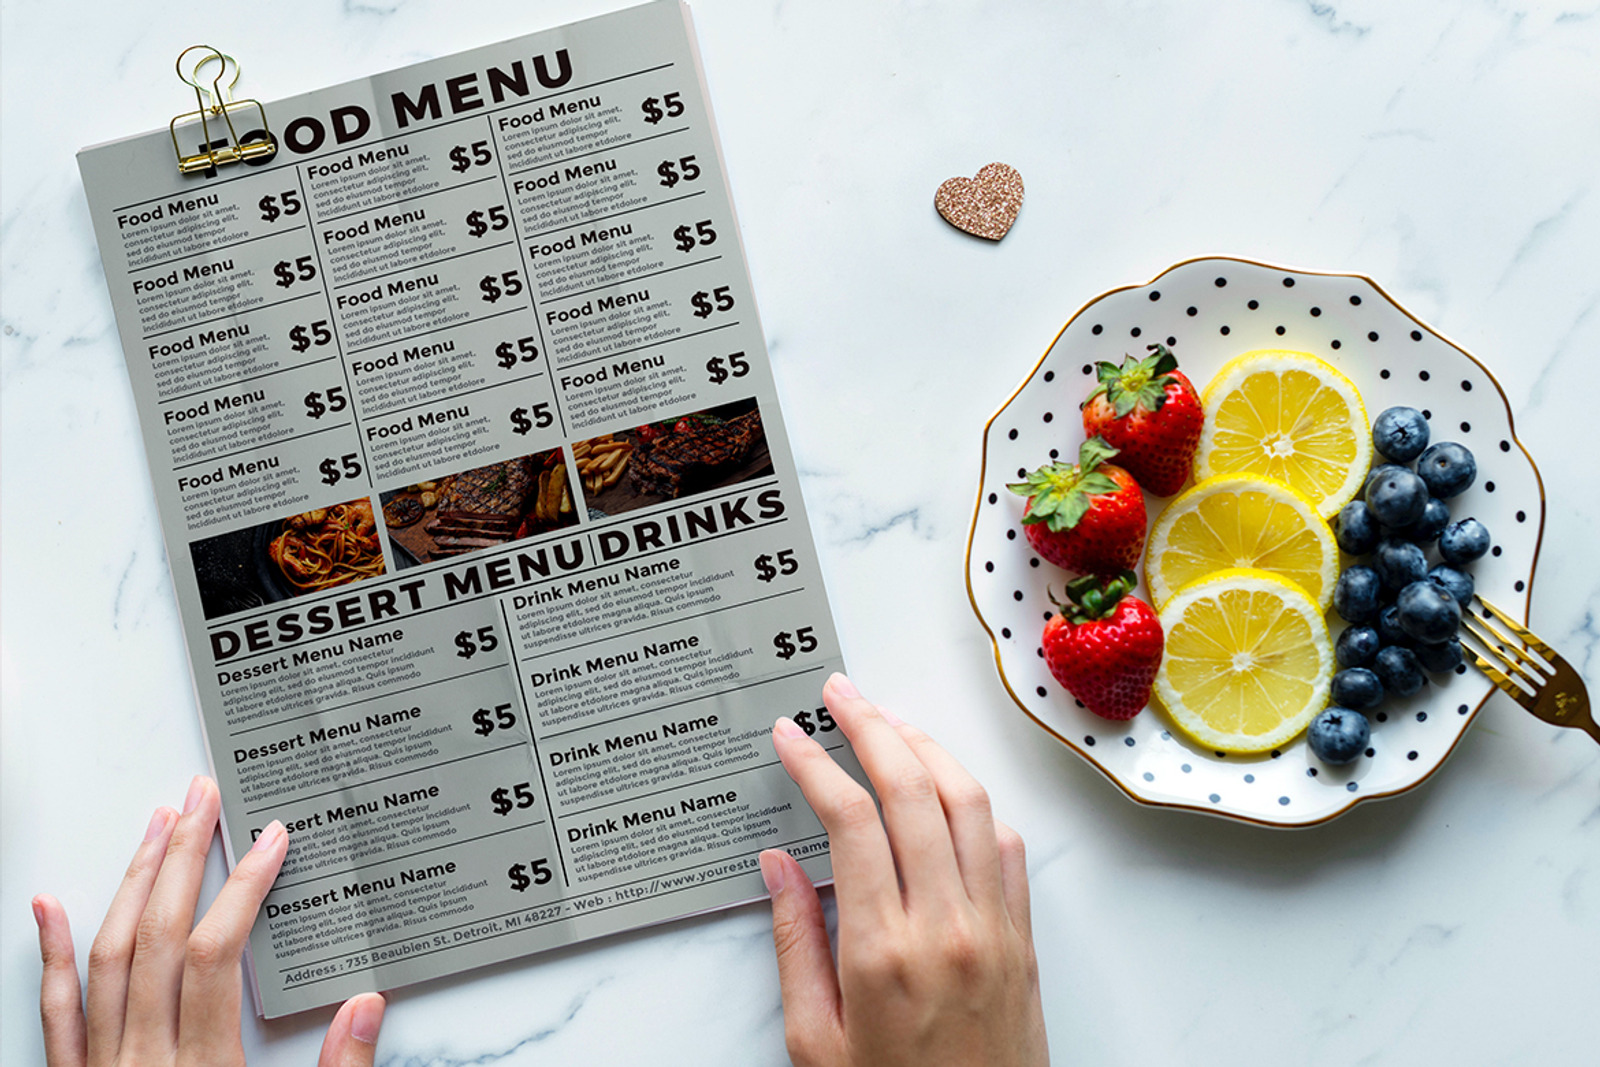 FOOD MENU
Food Menu $5
Lorem ipsum dolor sit amet,
consectetur adipiscing elit,
sed do eiusmod tempor
incididunt ut labore etdolore
Food Menu $5
Lorem ipsum dolor sit amet,
consectetur adipiscing elit,
sed do eiusmod tempor
incididunt ut labore etdolore
Food Menu $5
Lorem ipsum dolor sit amet,
consectetur adipiscing elit,
sed do eiusmod tempor
incididunt ut labore etdolore
Food Menu $5
Lorem ipsum dolor sit amet,
consectetur adipiscing elit,
sed do eiusmod tempor
incididunt ut labore etdolore
Food Menu $5
Lorem ipsum dolor sit amet,
consectetur adipiscing elit,
sed do eiusmod tempor
incididunt ut labore etdolore
Food Menu $5
Lorem ipsum dolor sit amet,
consectetur adipiscing elit,
sed do eiusmod tempor
incididunt ut labore etdolore
Food Menu $5
Lorem ipsum dolor sit amet,
consectetur adipiscing elit,
sed do eiusmod tempor
incididunt ut labore etdolore
Food Menu $5
Lorem ipsum dolor sit amet,
consectetur adipiscing elit,
sed do eiusmod tempor
incididunt ut labore etdolore
Food Menu $5
Lorem ipsum dolor sit amet,
consectetur adipiscing elit,
sed do eiusmod tempor
incididunt ut labore etdolore
Food Menu $5
Lorem ipsum dolor sit amet,
consectetur adipiscing elit,
sed do eiusmod tempor
incididunt ut labore etdolore
Food Menu $5
Lorem ipsum dolor sit amet,
consectetur adipiscing elit,
sed do eiusmod tempor
incididunt ut labore etdolore
Food Menu $5
Lorem ipsum dolor sit amet,
consectetur adipiscing elit,
sed do eiusmod tempor
incididunt ut labore etdolore
Food Menu $5
Lorem ipsum dolor sit amet,
consectetur adipiscing elit,
sed do eiusmod tempor
incididunt ut labore etdolore
Food Menu $5
Lorem ipsum dolor sit amet,
consectetur adipiscing elit,
sed do eiusmod tempor
incididunt ut labore etdolore
Food Menu $5
Lorem ipsum dolor sit amet,
consectetur adipiscing elit,
sed do eiusmod tempor
incididunt ut labore etdolore
DESSERT MENU
Dessert Menu Name $5
Lorem ipsum dolor sit amet, consectetur
adipiscing elit, sed do eiusmod tempor incididunt
ut labore edolore magna aliqua. Quis ipsum
suspendisse ultrices gravida. Risus commodo
Dessert Menu Name $5
Lorem ipsum dolor sit amet, consectetur
adipiscing elit, sed do eiusmod tempor incididunt
ut labore edolore magna aliqua. Quis ipsum
suspendisse ultrices gravida. Risus commodo
Dessert Menu Name $5
ipsum dolor sit amet, consectetur
elit, sed do eiusmod tempor incididunt
edolore magna aliqua. Quis ipsum
ultrices gravida. Risus commodo
Dessert Menu Name $5
Lorem ipsum dolor sit amet, consectetur
adipiscing elit, sed do eiusmod tempor incididunt
ut labore edolore magna aliqua. Quis ipsum
suspendisse ultrices gravida. Risus commodo
DRINKS
Drink Menu Name $5
Lorem ipsum dolor sit amet, consectetur
adipiscing elit, sed do eiusmod tempor incididunt
ut labore edolore magna aliqua. Quis ipsum
suspendisse ultrices gravida. Risus commodo
Drink Menu Name $5
Lorem ipsum dolor sit amet, consectetur
adipiscing elit, sed do eiusmod tempor incididunt
ut labore edolore magna aliqua. Quis ipsum
suspendisse ultrices gravida. Risus commodo
Drink Menu Name $5
Lorem ipsum dolor sit amet, consectetur
adipiscing elit, sed do eiusmod tempor incididunt
ut labore edolore magna aliqua. Quis ipsum
suspendisse ultrices gravida. Risus commodo
Drink Menu Name
Lorem ipsum dolor sit amet, consectetur
adipiscing elit, sed do eiusmod tempor incididunt
ut labore edolore magna aliqua. Quis ipsum
suspendisse ultrices gravida. Risus commodo
Address : 735 Beaubien St. Detroit, MI 48227 - Web : http://www.yoursta